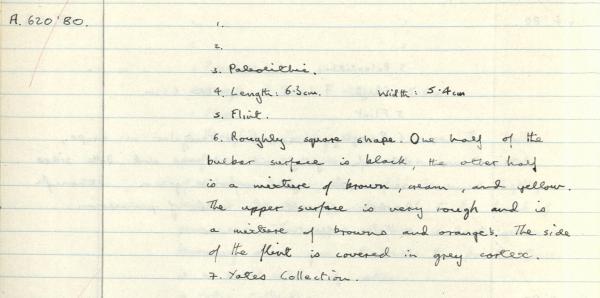 A. 620'80.
1.
2.
3. Paleolithic.
4. Length: 6.3cm. Width: 5.4cm
5. Flint.
6. Roughly square shape. One half of the
bulbar surface is black, the other half
is a mixture of brown, cream, and yellow.
The upper surface is very rough and is
a mixture of browns and orange's. The side
of the flint is covered in grey cortex.
7. Yates Collection.